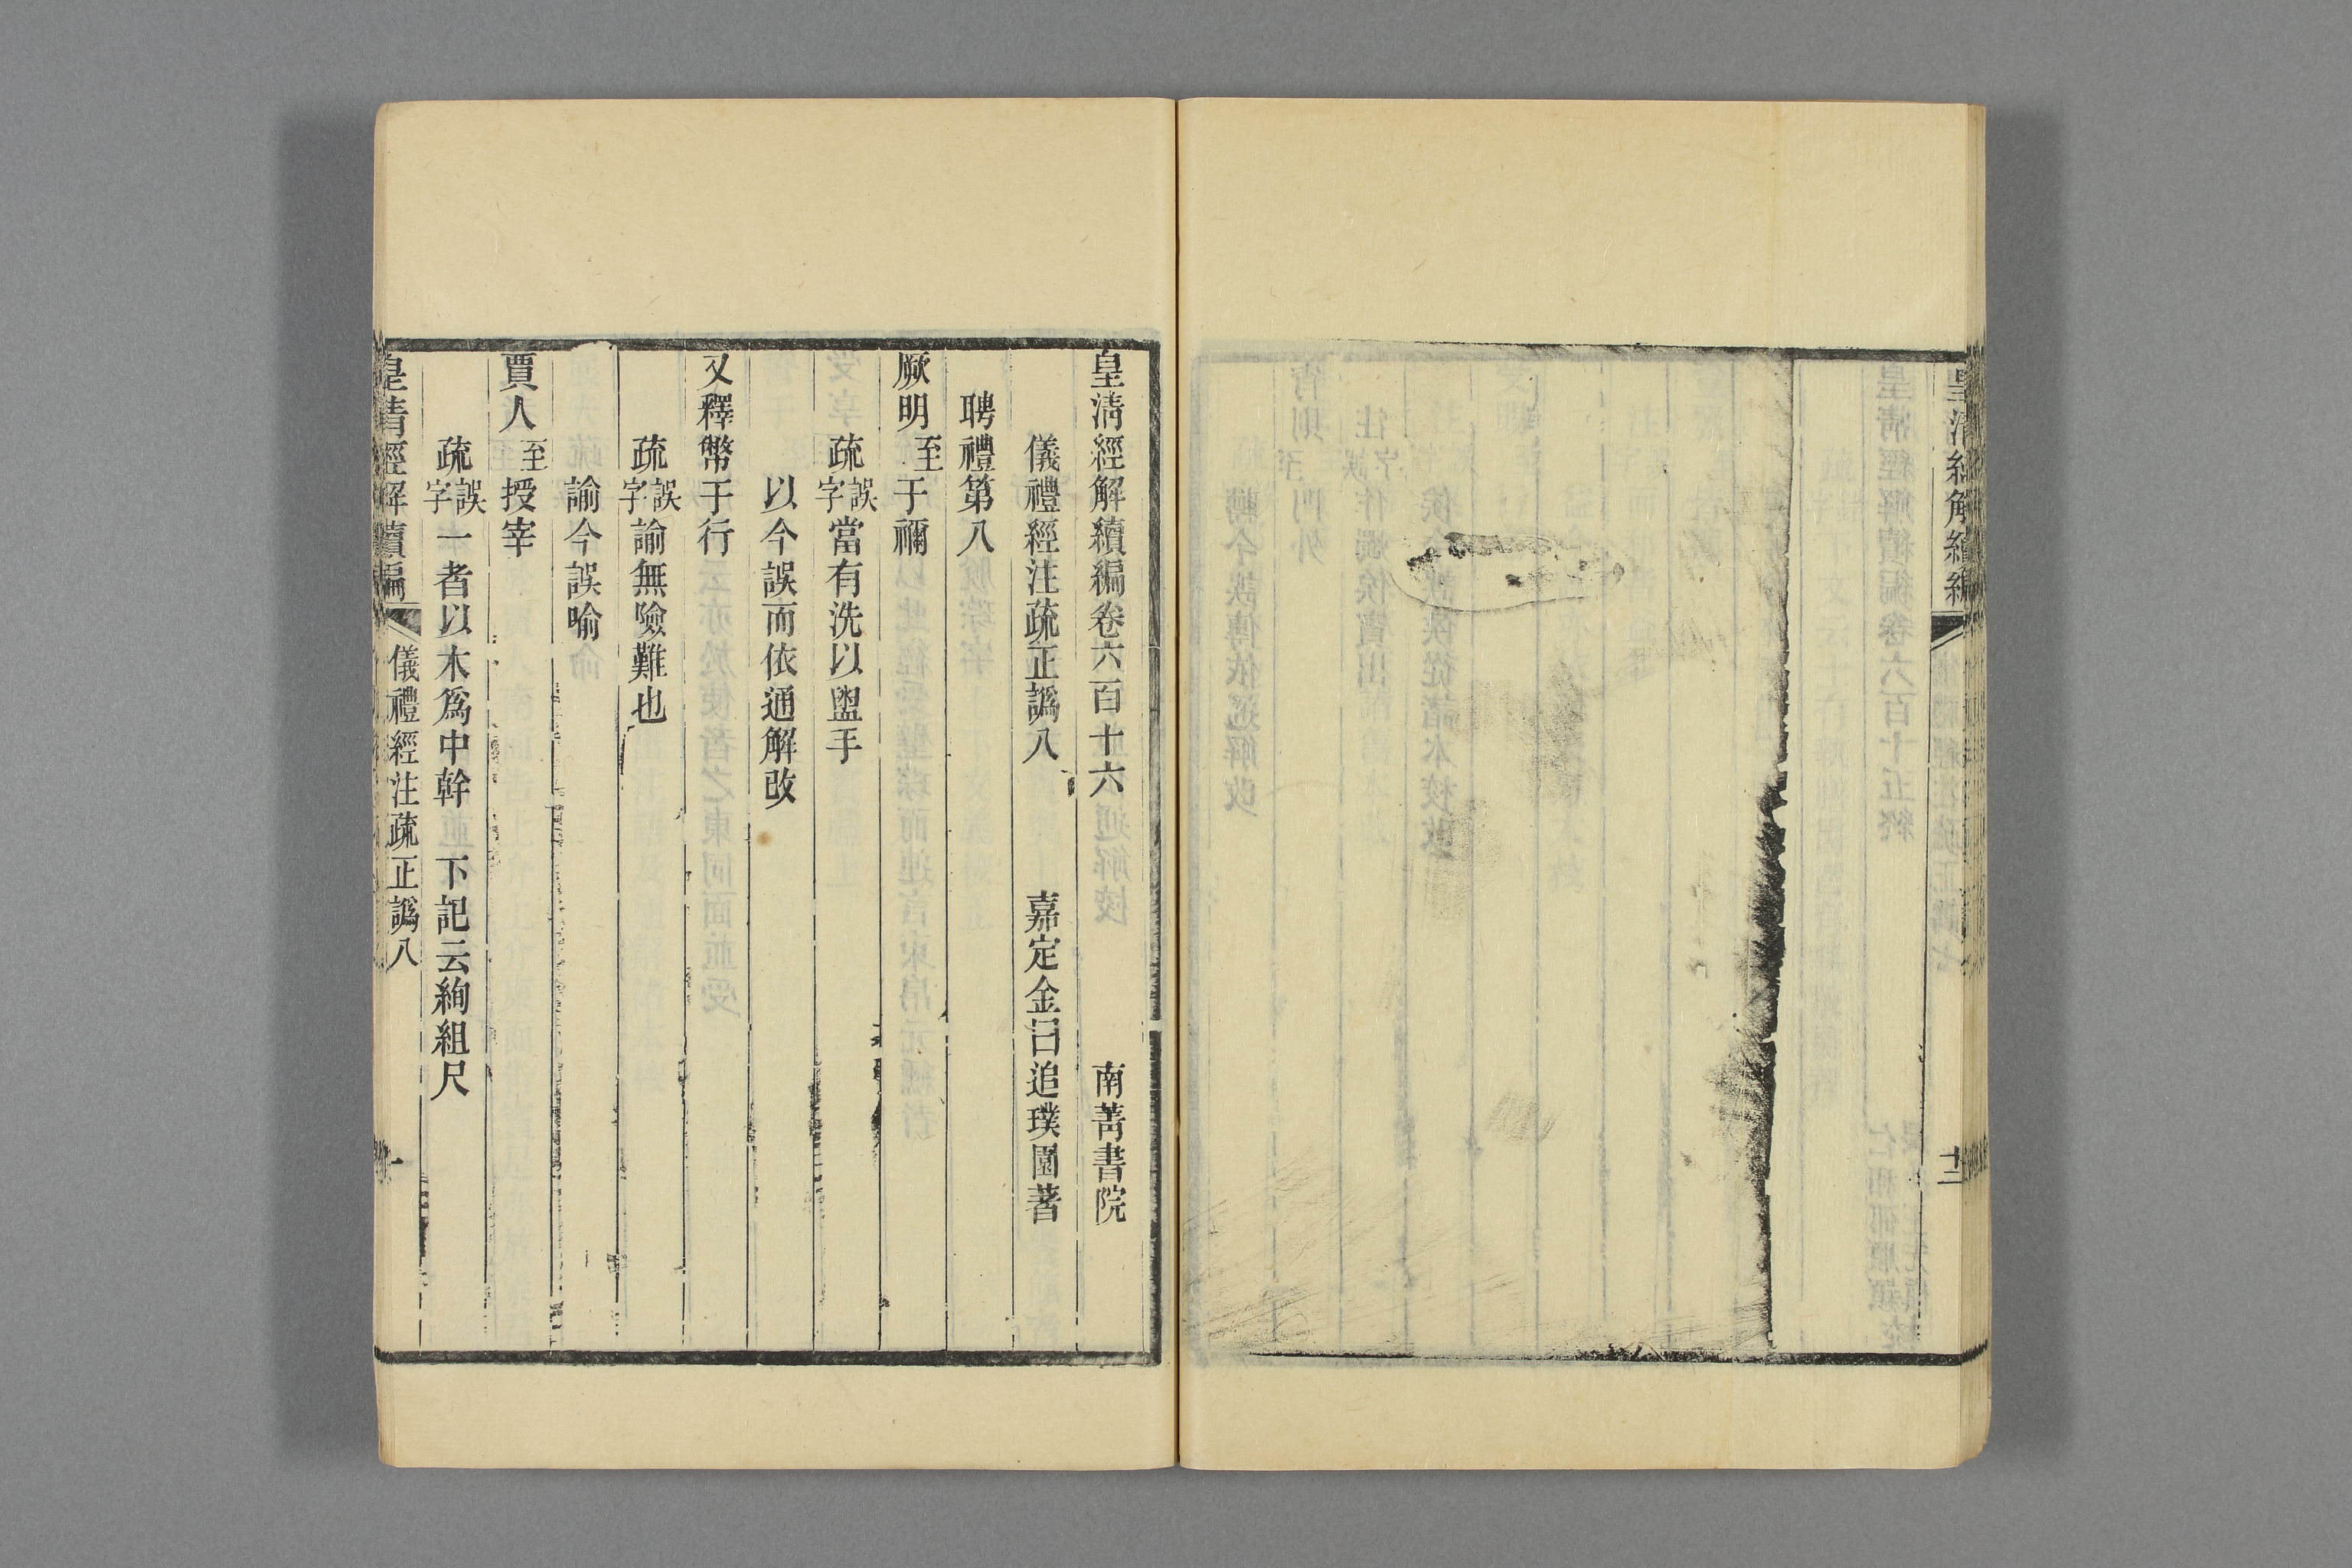 皇清經解續編
十二
皇清經解續編卷六百十六 南菁書院
儀禮經注疏正譌八 嘉定金曰追璞園著
聘禮第八
厥明至于禰
疏誤字當有洗以盥手
以今誤而依通解改
又釋幣于行
疏誤字諭無險難也
諭今誤喻
賈人至授宰
疏誤字一者以木爲中幹 下記云絢組尺
皇清經解續編 儀禮經注疏正譌八 一